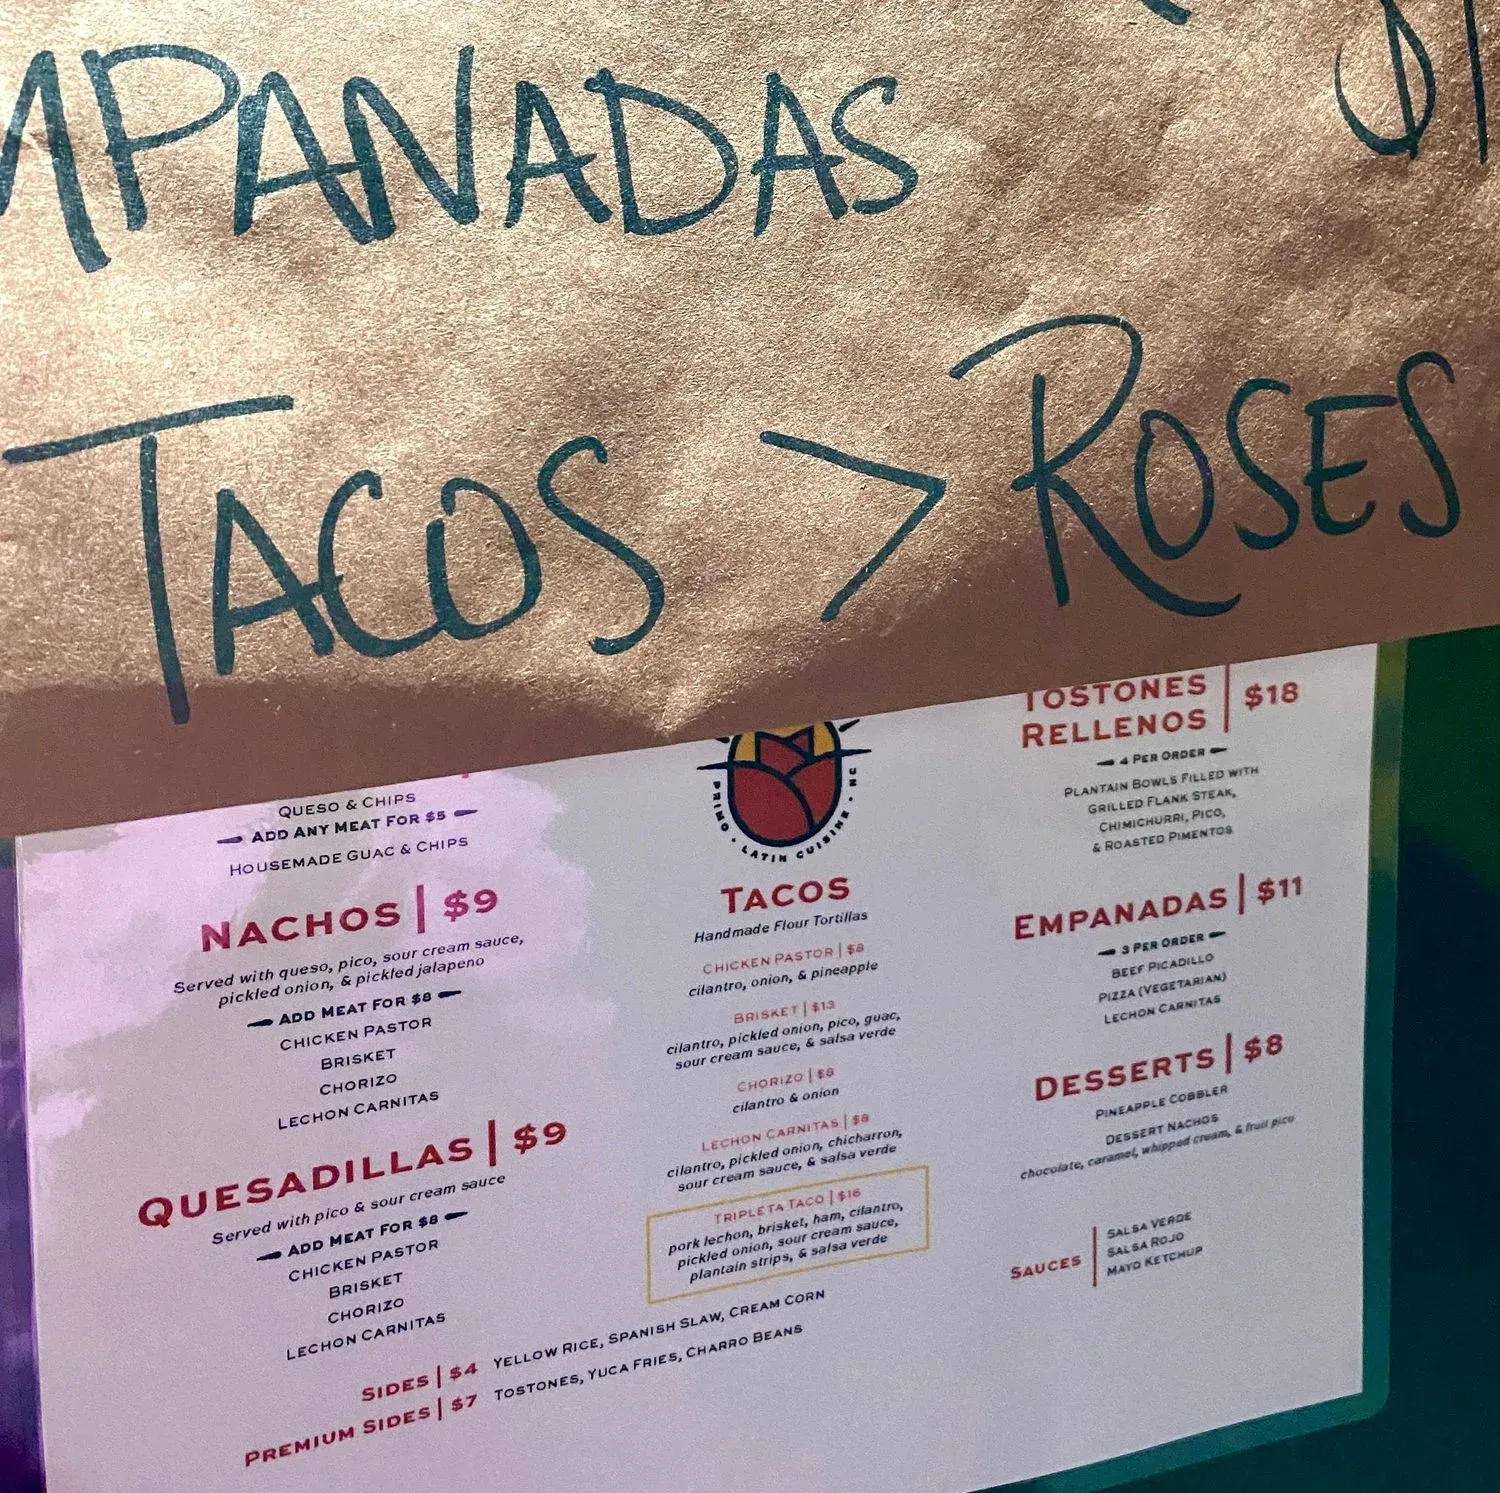 MPANADAS
TACOS > ROSES
QUESO & CHIPS
ADD ANY MEAT FOR $5
HOUSEMADE GUAC & CHIPS
NACHOS | $9
Served with queso, pico, sour cream sauce,
pickled onion, & pickled jalapeno
ADD MEAT FOR $8
CHICKEN PASTOR
BRISKET
CHORIZO
LECHON CARNITAS
QUESADILLAS | $9
Served with pico & sour cream sauce
ADD MEAT FOR $8
CHICKEN PASTOR
BRISKET
CHORIZO
LECHON CARNITAS
SIDES | $4 YELLOW RICE, SPANISH SLAW, CREAM CORN
PREMIUM SIDES | $7 TOSTONES, YUCA FRIES, CHARRO BEANS
PRIMO • LATIN CUISINE • NC
TACOS
Handmade Flour Tortillas
CHICKEN PASTOR | $8
cilantro, onion, & pineapple
BRISKET | $13
cilantro, pickled onion, pico, guac,
sour cream sauce, & salsa verde
CHORIZO | $8
cilantro & onion
LECHON CARNITAS | $8
cilantro, pickled onion, chicharron,
sour cream sauce, & salsa verde
TRIPLETA TACO | $16
pork lechon, brisket, ham, cilantro,
pickled onion, sour cream sauce,
plantain strips, & salsa verde
TOSTONES
RELLENOS | $18
4 PER ORDER
PLANTAIN BOWLS FILLED WITH
GRILLED FLANK STEAK,
CHIMICHURRI, PICO,
& ROASTED PIMENTOS
EMPANADAS | $11
3 PER ORDER
BEEF PICADILLO
PIZZA (VEGETARIAN)
LECHON CARNITAS
DESSERTS | $8
PINEAPPLE COBBLER
DESSERT NACHOS
chocolate, caramel, whipped cream, & fruit pico
SAUCES
SALSA VERDE
SALSA ROJO
MAYO KETCHUP